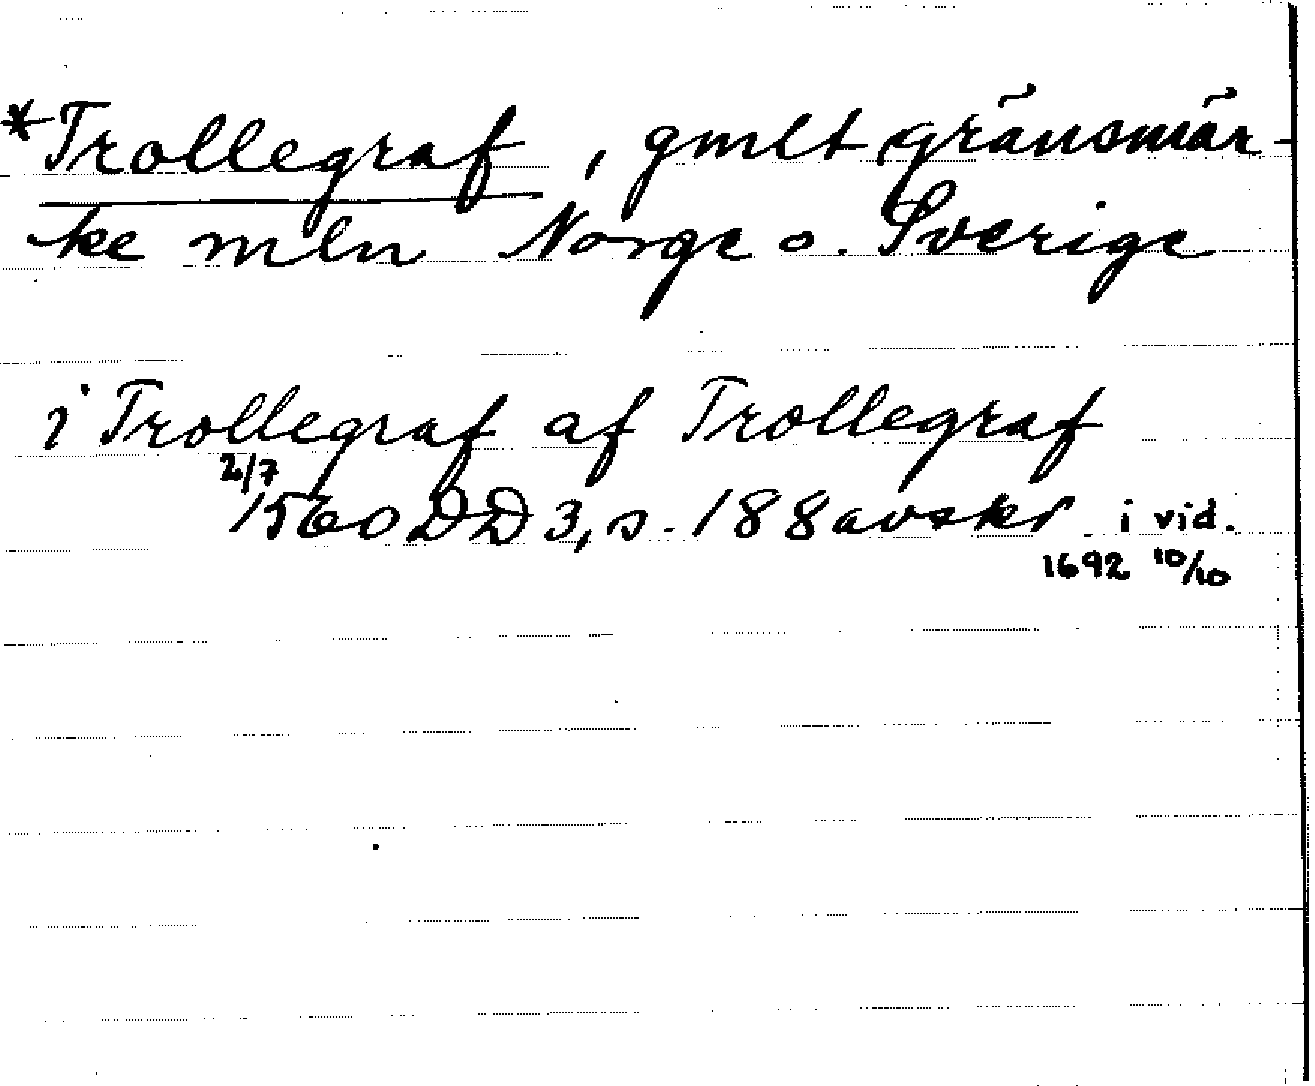 *Trollegraf, gmlt gränsmär-
ke mln Norge o. Sverige
i Trollegraf af Trollegraf
2/7
1560 DD 3, s. 188 avskr i vid.
1692 10/10